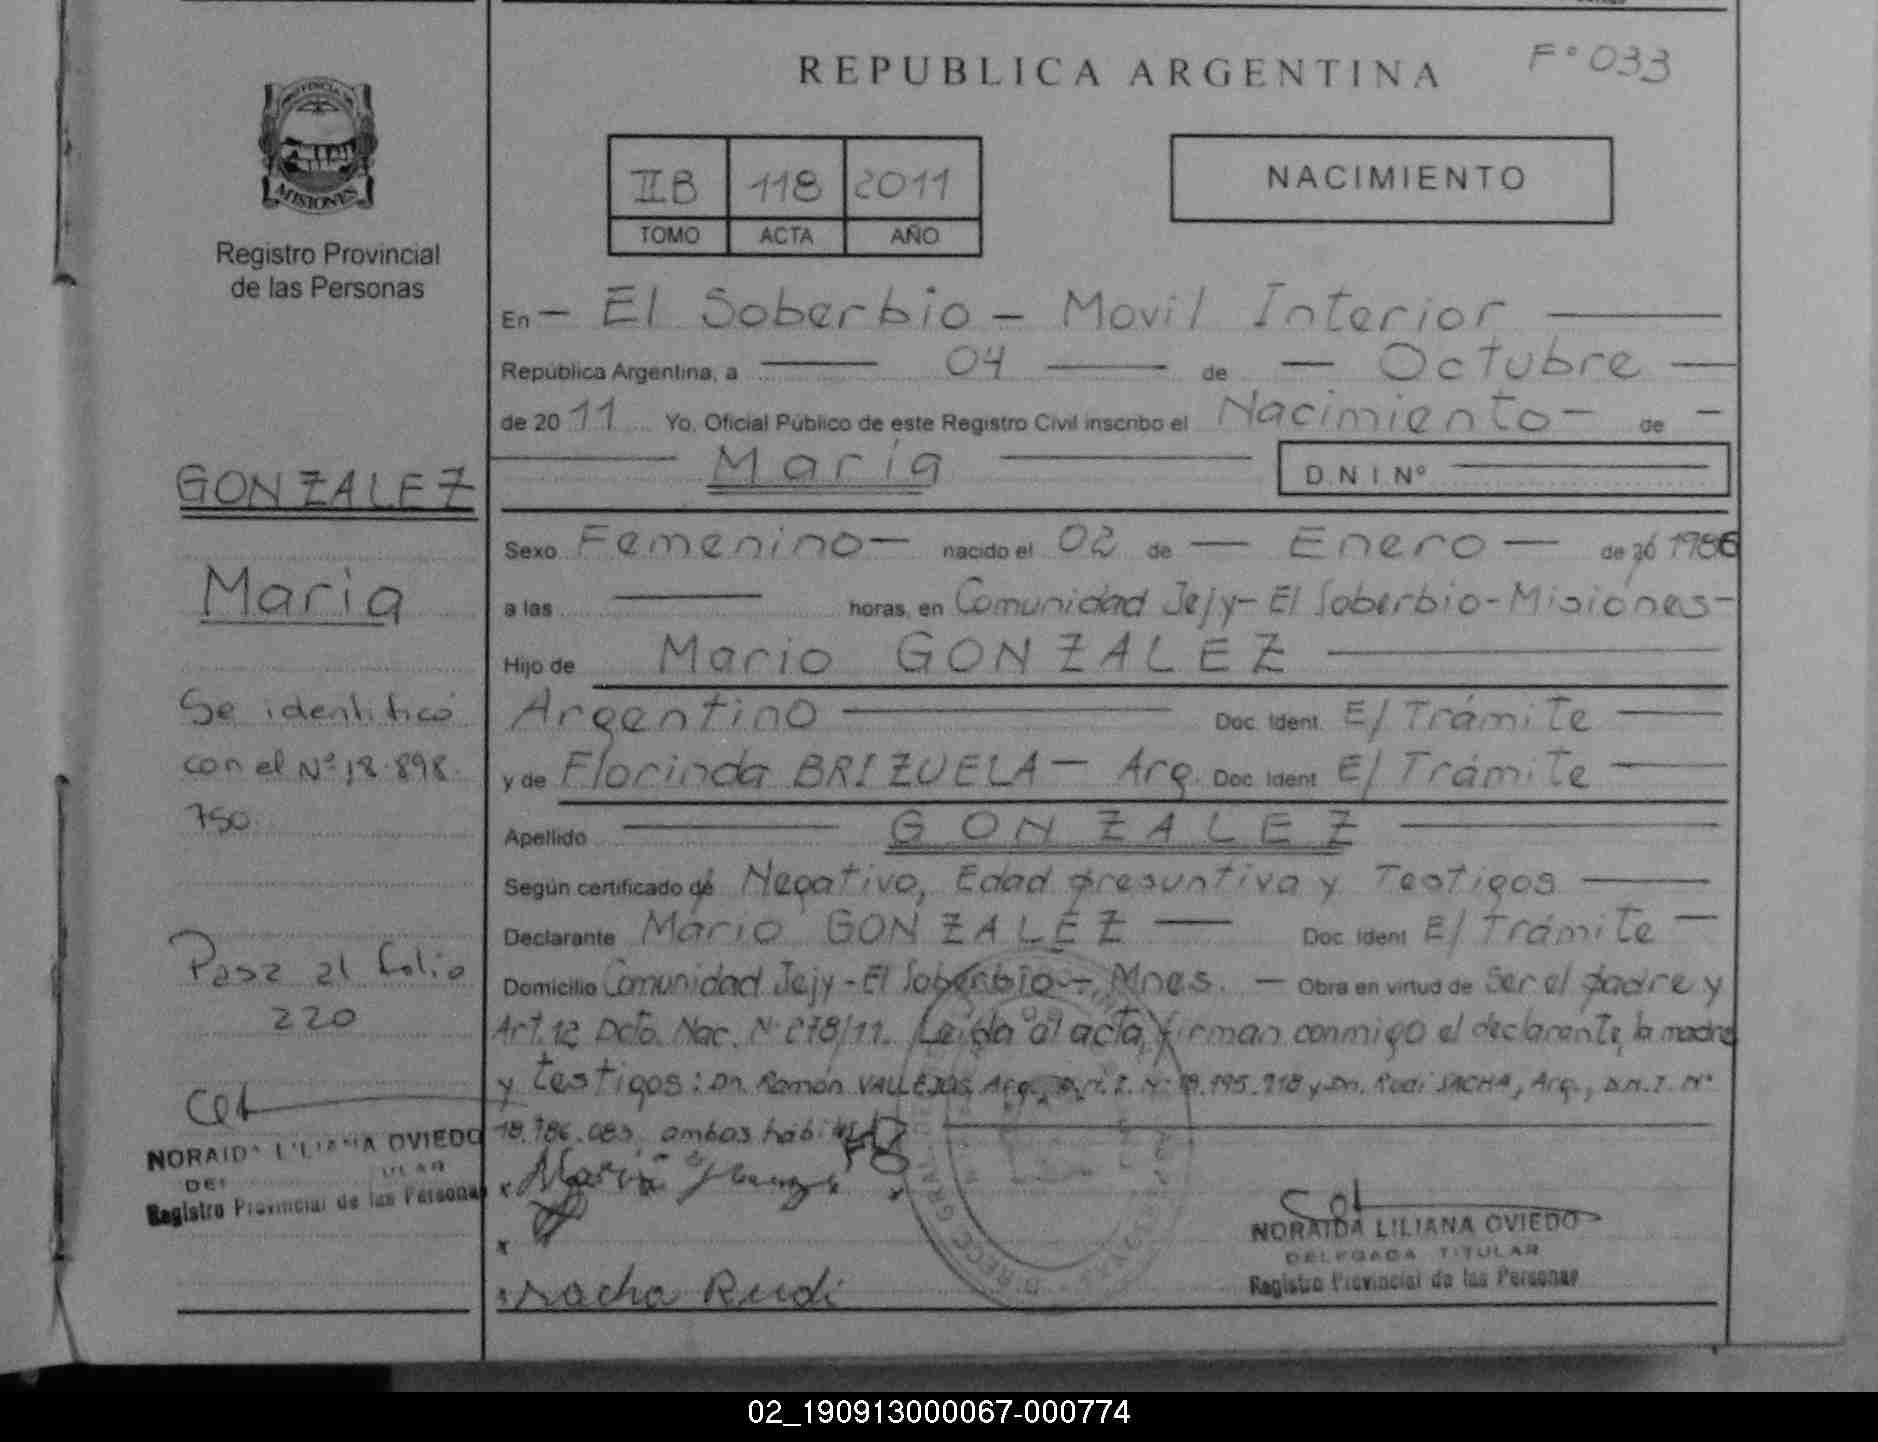 REPUBLICA ARGENTINA
Fº 033
PROVINCIA DE
MISIONES
Registro Provincial
de las Personas
IIB 118 2011
TOMO ACTA AÑO
NACIMIENTO
En - El Soberbio - Movil Interior
República Argentina, a 04 de - Octubre
de 2011 Yo, Oficial Público de este Registro Civil inscribo el Nacimiento - de -
María
D.N.I. Nº
Sexo Femenino - nacido el 02 de - Enero - de 20 1986
a las horas, en Comunidad Jejy - El Soberbio - Misiones -
Hijo de Mario GONZALEZ
Argentino Doc. Ident. E/ Trámite
y de Florinda BRIZUELA - Arg. Doc. Ident. E/ Trámite
Apellido GONZALEZ
Según certificado de Negativo, Edad presuntiva y Testigos
Declarante Mario GONZALEZ Doc. Ident. E/ Trámite
Domicilio Comunidad Jejy - El Soberbio - Mnes. - Obra en virtud de Ser el padre y
Art. 12 Dcto. Nac. Nº 278/11. Leída al acta, firman conmigo el declarante, la madre
y testigos: Dn. Ramón VALLEJOS, Arg., D.N.I. Nº y Dn. Rudi SACHA, Arg., D.N.I. Nº
18.786.083, ambos
Sacha Rudi
NORAIDA LILIANA OVIEDO
DELEGADA TITULAR
Registro Provincial de las Personas
GONZALEZ
María
Se identificó
con el Nº 18.898.
750.
Pasa al folio
220
NORAIDA LILIANA OVIEDO
Registro Provincial de las Personas
02_190913000067-000774